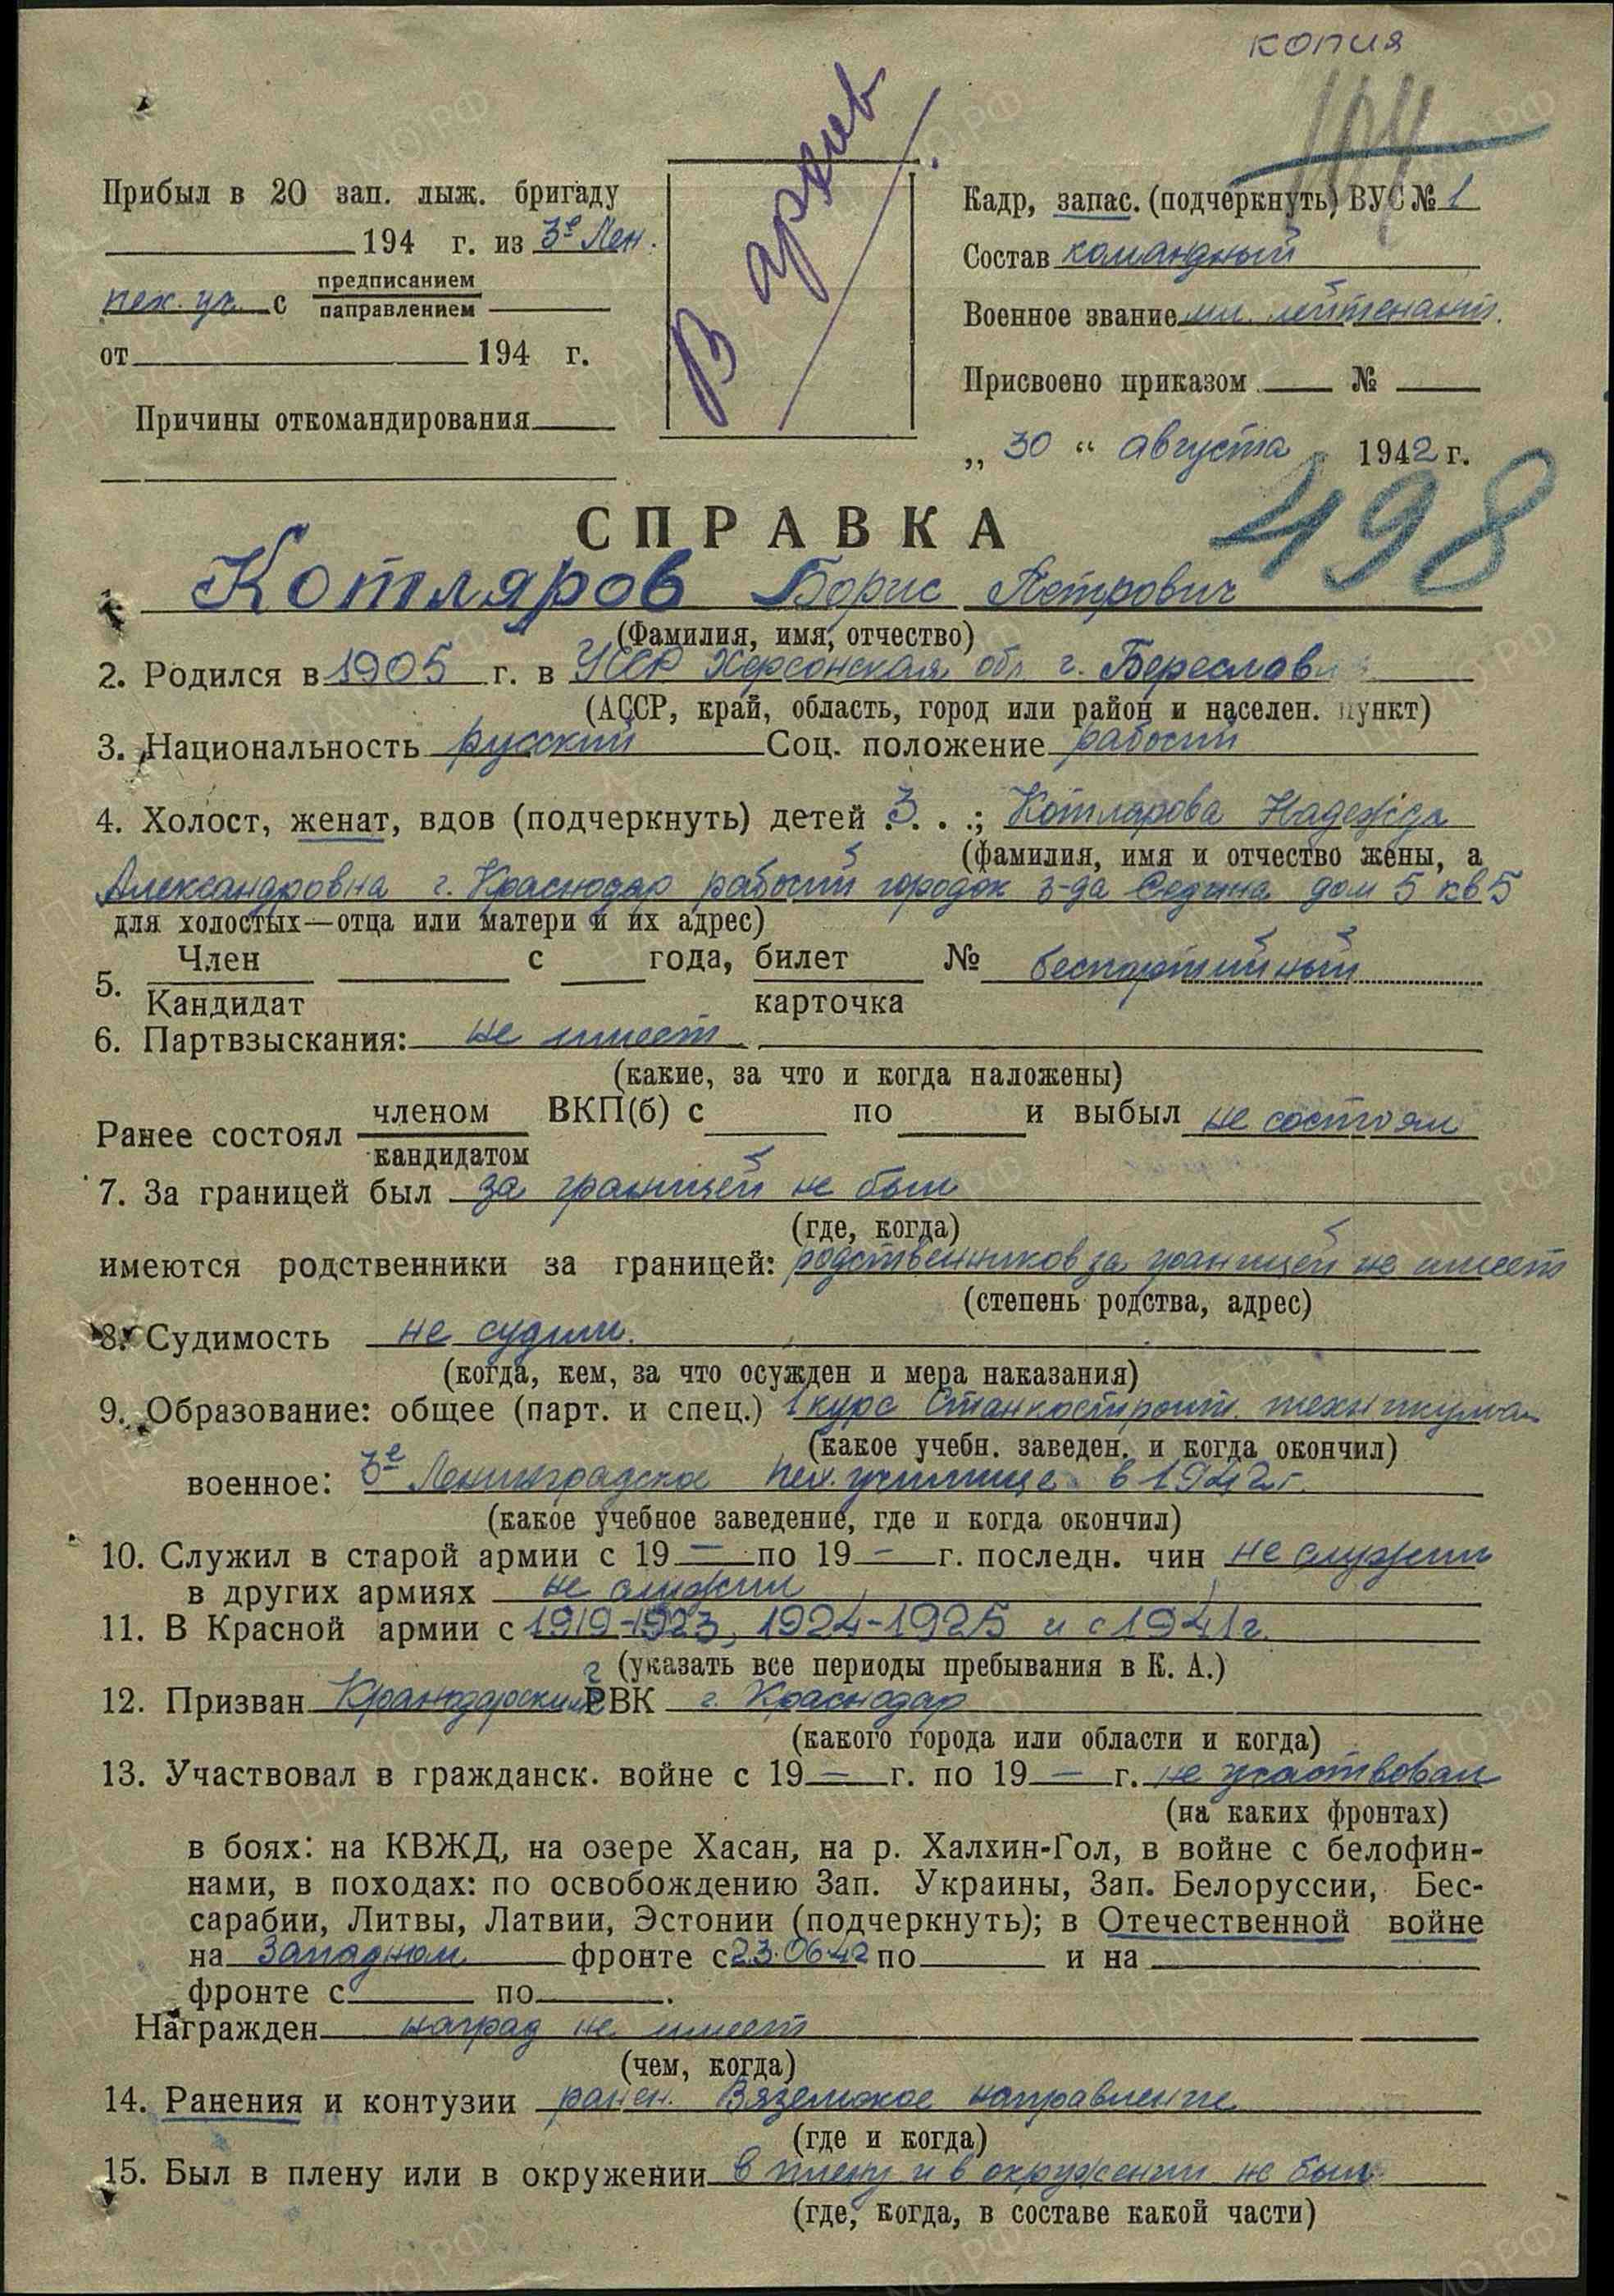 копия
104
Прибыл в 20 зап. лыж. бригаду
194 г. из 3е Лен.
пех. уч. с предписанием
направлением
от 194 г.
Причины откомандирования
В архив
Кадр, запас. (подчеркнуть) ВУС № 1
Состав командный
Военное звание мл. лейтенант.
Присвоено приказом №
„ 30 “ августа 1942 г.
498
СПРАВКА
Котляров Борис Петрович
(Фамилия, имя, отчество)
2. Родился в 1905 г. в УССР Херсонская обл г. Береслав
(АССР, край, область, город или район и населен. пункт)
3. Национальность русский Соц. положение рабочий
4. Холост, женат, вдов (подчеркнуть) детей 3 . . .; Котлярова Надежда
(фамилия, имя и отчество жены, а
Александровна г. Краснодар рабочий городок з-да Седина дом 5 кв 5
для холостых—отца или матери и их адрес)
5. Член с года, билет № беспартийный
Кандидат карточка
6. Партвзыскания: не имеет
(какие, за что и когда наложены)
Ранее состоял членом ВКП(б) с по и выбыл не состоял
кандидатом
7. За границей был за границей не был
(где, когда)
имеются родственники за границей: родственников за границей не имеет
(степень родства, адрес)
8. Судимость не судим.
(когда, кем, за что осужден и мера наказания)
9. Образование: общее (парт. и спец.) 1 курс Станкостроит. техникума
(какое учебн. заведен. и когда окончил)
военное: 3е Ленинградское пех. училище в 1942 г.
(какое учебное заведение, где и когда окончил)
10. Служил в старой армии с 19 — по 19 — г. последн. чин не служил
в других армиях не служил
11. В Красной армии с 1919-1923, 1924-1925 и с 1941 г.
(указать все периоды пребывания в К. А.)
12. Призван ГВК г. Краснодар
(какого города или области и когда)
13. Участвовал в гражданск. войне с 19 — г. по 19 — г. не участвовал
(на каких фронтах)
в боях: на КВЖД, на озере Хасан, на р. Халхин-Гол, в войне с белофин-
нами, в походах: по освобождению Зап. Украины, Зап. Белоруссии, Бес-
сарабии, Литвы, Латвии, Эстонии (подчеркнуть); в Отечественной войне
на Западном фронте с 23.06.42 по и на
фронте с по .
Награжден наград не имеет
(чем, когда)
14. Ранения и контузии ранен. Вяземское направление
(где и когда)
15. Был в плену или в окружении в плену и в окружении не был
(где, когда, в составе какой части)